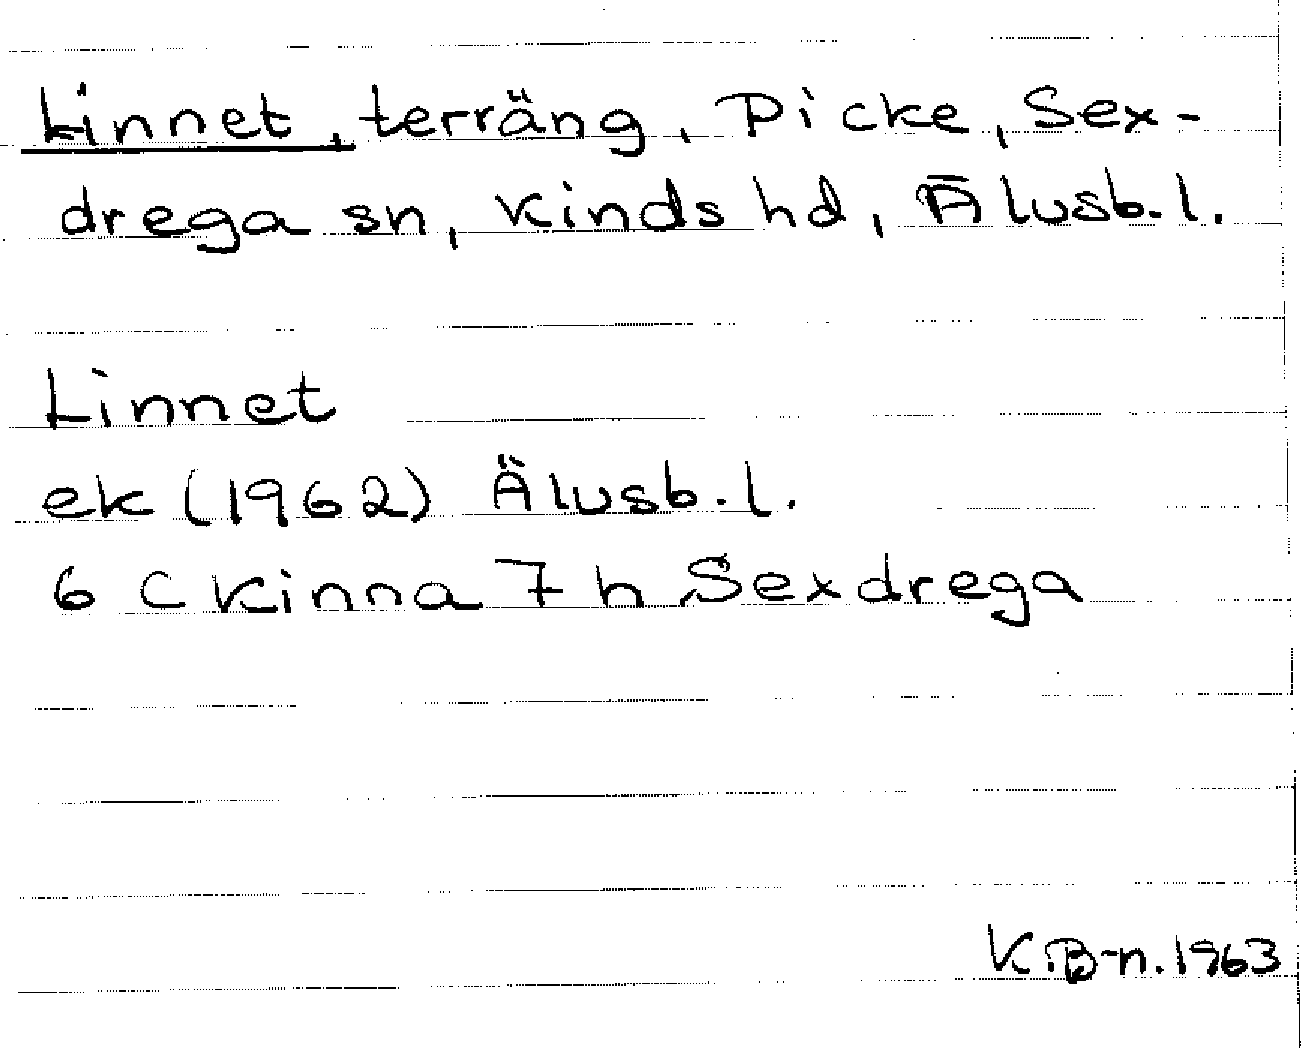 Linnet, terräng, Picke, Sex-
drega sn, Kinds hd, Älvsb.l.
Linnet
ek (1962) Älvsb.l.
6 C Kinna 7 h Sexdrega
K.B-n. 1963